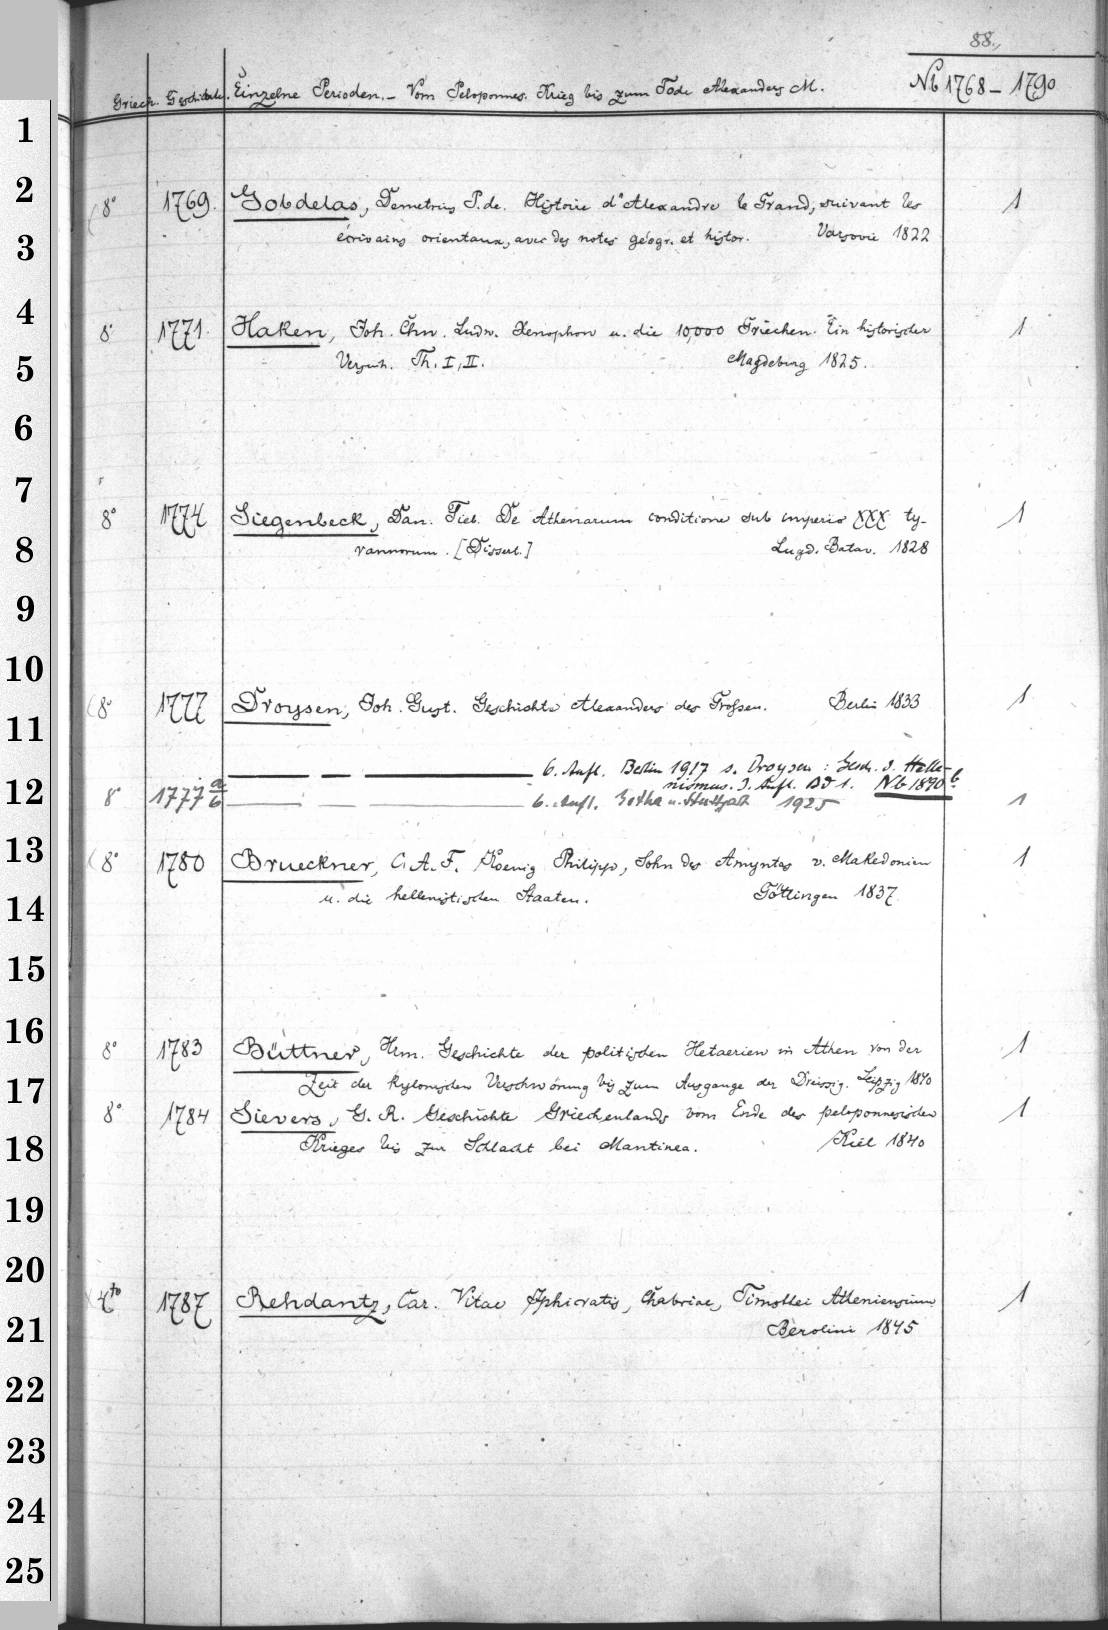 88.,
Griech. Geschichte. Einzelne Perioden. – Vom Peloponnes. Krieg bis zum Tode Alexanders M. Nb 1768 – 1790
1
2 8° 1769. Gobdelas, Demetrius P. de. Histoire d'Alexandre le Grand, suivant les 1
3 écrivains orientaux, avec des notes géogr. et histor. Varsovie 1822
4 8° 1771. Haken, Joh. Chn. Ludw. Xenophon u. die 10,000 Griechen. Ein historischer 1
5 Versuch. Th. I, II. Magdeburg 1825.
6
7 8° 1774 Siegenbeck, Dan. Tieb. De Athenarum conditione sub imperio XXX ty- 1
8 rannorum. [Dissert.] Lugd. Batav. 1828
9
10
11 8° 1777 Droysen, Joh. Gust. Geschichte Alexanders des Grossen. Berlin 1833 1
6. Aufl. Berlin 1917 s. Droysen: Gesch. d. Helle-
nismus. 3. Aufl. Bd 1. Nb 1890 b.
12 8° 1777 a/b — — — 6. Aufl. Gotha u. Stuttgart 1925 1
13 8° 1780 Brueckner, C. A. F. Koenig Philipp, Sohn des Amyntas v. Makedonien 1
14 u. die hellenistischen Staaten. Göttingen 1837.
15
16 8° 1783 Büttner, Hrm. Geschichte der politischen Hetaerien in Athen von der 1
17 Zeit der kylonischen Verschwörung bis zum Ausgange der Dreissig. Leipzig 1840
8° 1784 Sievers, G. R. Geschichte Griechenlands vom Ende des peloponnesischen 1
18 Krieges bis zur Schlacht bei Mantinea. Kiel 1840
19
20
4to 1787 Rehdantz, Car. Vitae Iphicratis, Chabriae, Timothei Atheniensium 1
21 Berolini 1845
22
23
24
25